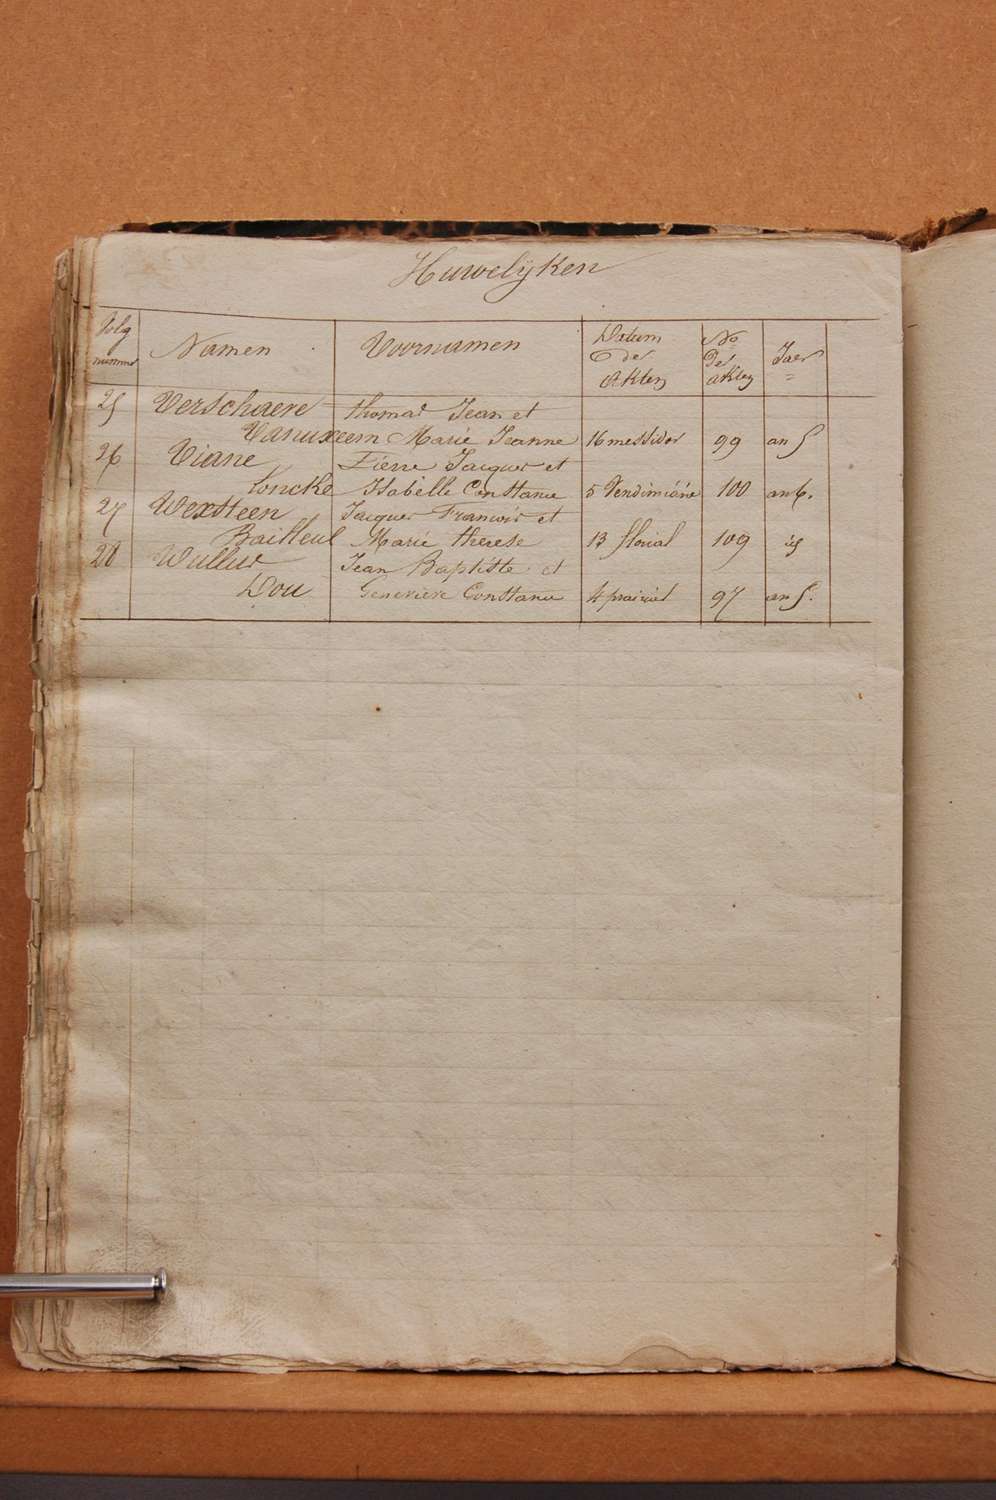 Huwelijken
Volg nummer Namen Voornamen Datum der Akten No der akten Jaer
25 Verschaeve thomas Jean et
Vanuxeem Marie Jeanne 16 messidor 99 an 5
26 Viane Pierre Jacques et
Loncke Isabelle Constance 5 Vendimiáire 100 an 6.
27 Wexsteen Jacques Francois et
Bailleul Marie therese 13 floreal 109 id
28 Wullus Jean Baptiste et
Dou Genevieve Constance 4 prairial 97 an 5.